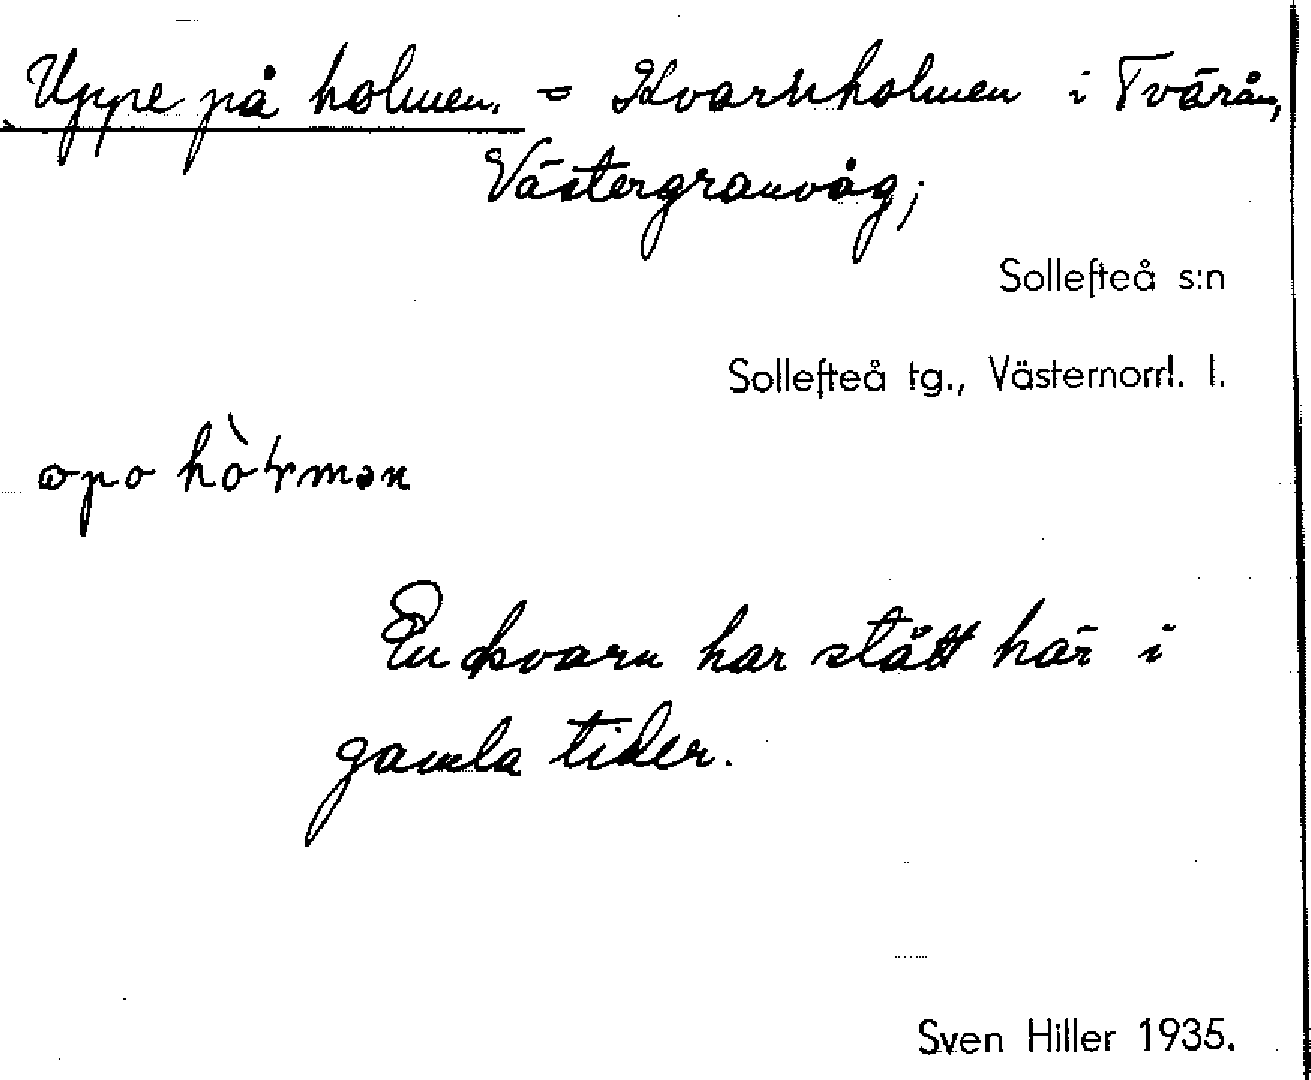 Uppe på holmen. = Kvarnholmen i Tvärån,
Västergranvåg;
Sollefteå s:n
Sollefteå tg., Västernorrl. l.
opo
En kvarn har stått här i
gamla tider.
Sven Hiller 1935.